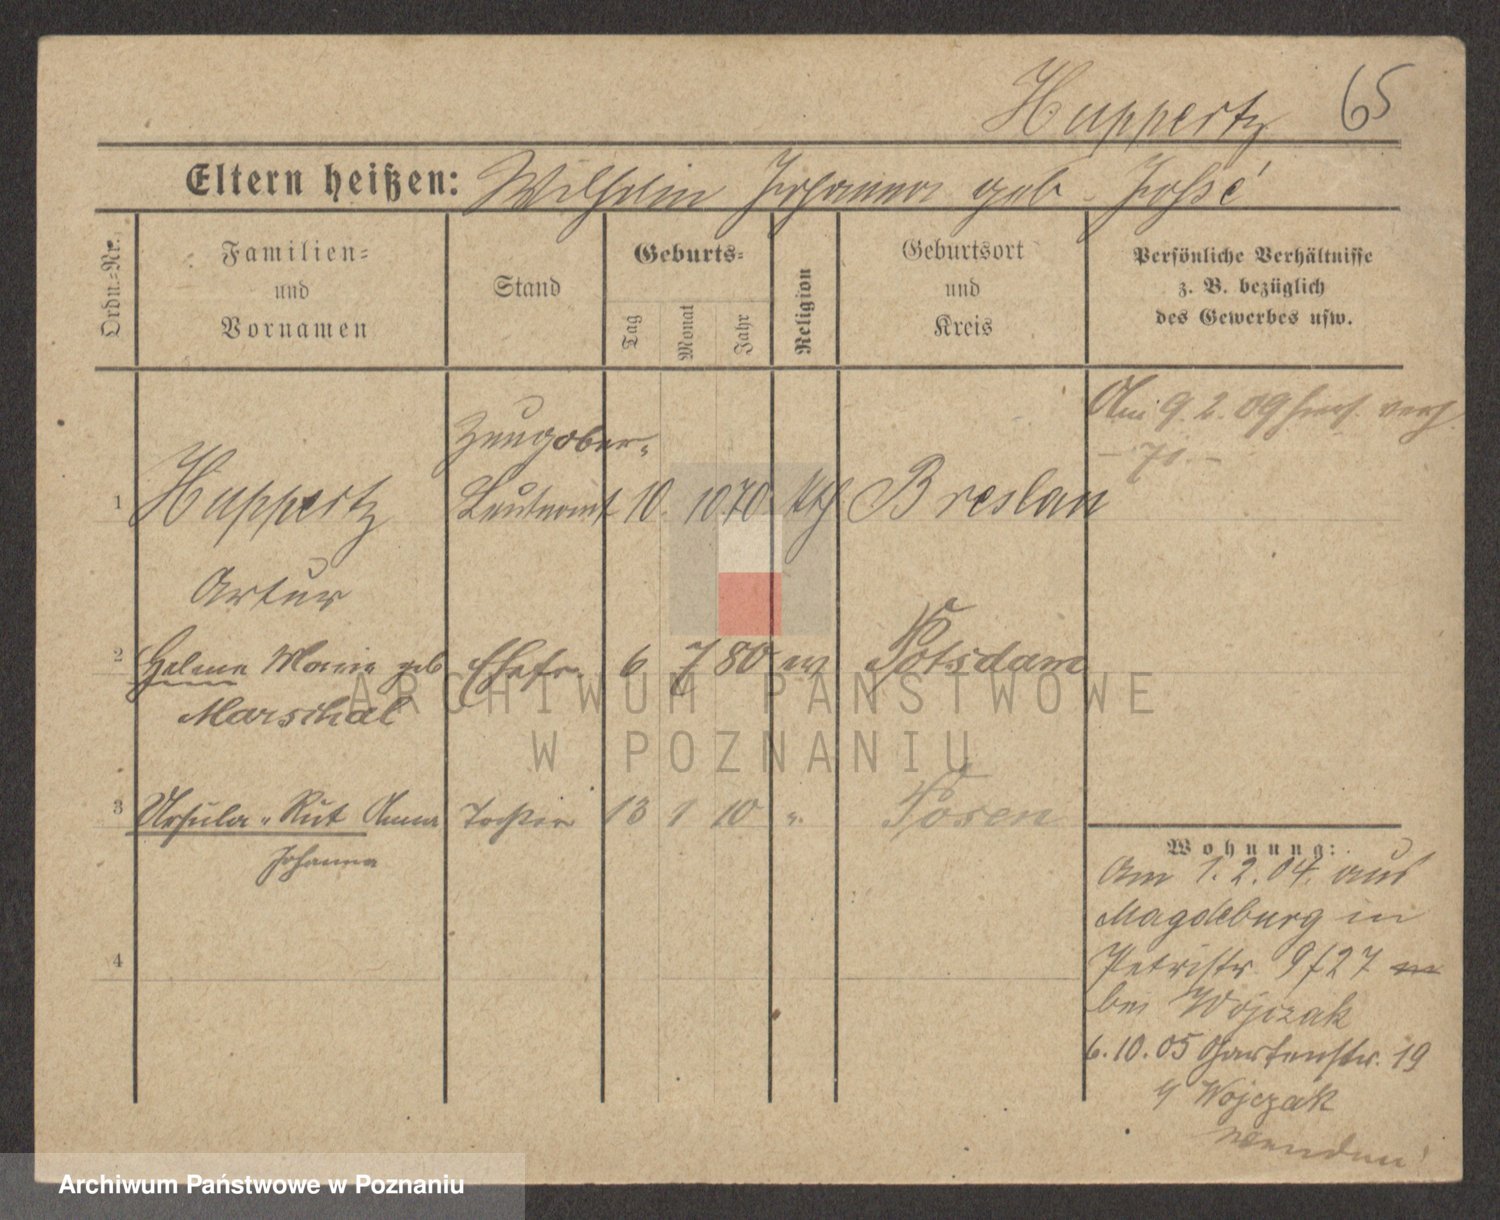 Huppertz 65
Eltern heißen: Wilhelm Johanna geb. Josse
Ordn.=Nr.
Familien=
und
Vornamen
Stand
Geburts=
Tag
Monat
Jahr
Religion
Geburtsort
und
Kreis
Persönliche Verhältnisse
z. B. bezüglich
des Gewerbes usw.
1
Huppertz
Artur
Zeugober-
Leutnant
10. 10 70
kth
Breslau
Am 9.2.09
2
Helene Marie geb
Marschal
Ehefr.
6 7 80 ev
Potsdam
3
Ursula - Rut Anna
Johanna
Tochter
13 1 10 "
Posen
4
Wohnung:
Am 1.2.04. aus
Magdeburg in
Petristr. 9/27
bei Wojczak
6.10.05 Gartenstr. 19
Wojczak
wenden!
ARCHIWUM PAŃSTWOWE
W POZNANIU
Archiwum Państwowe w Poznaniu